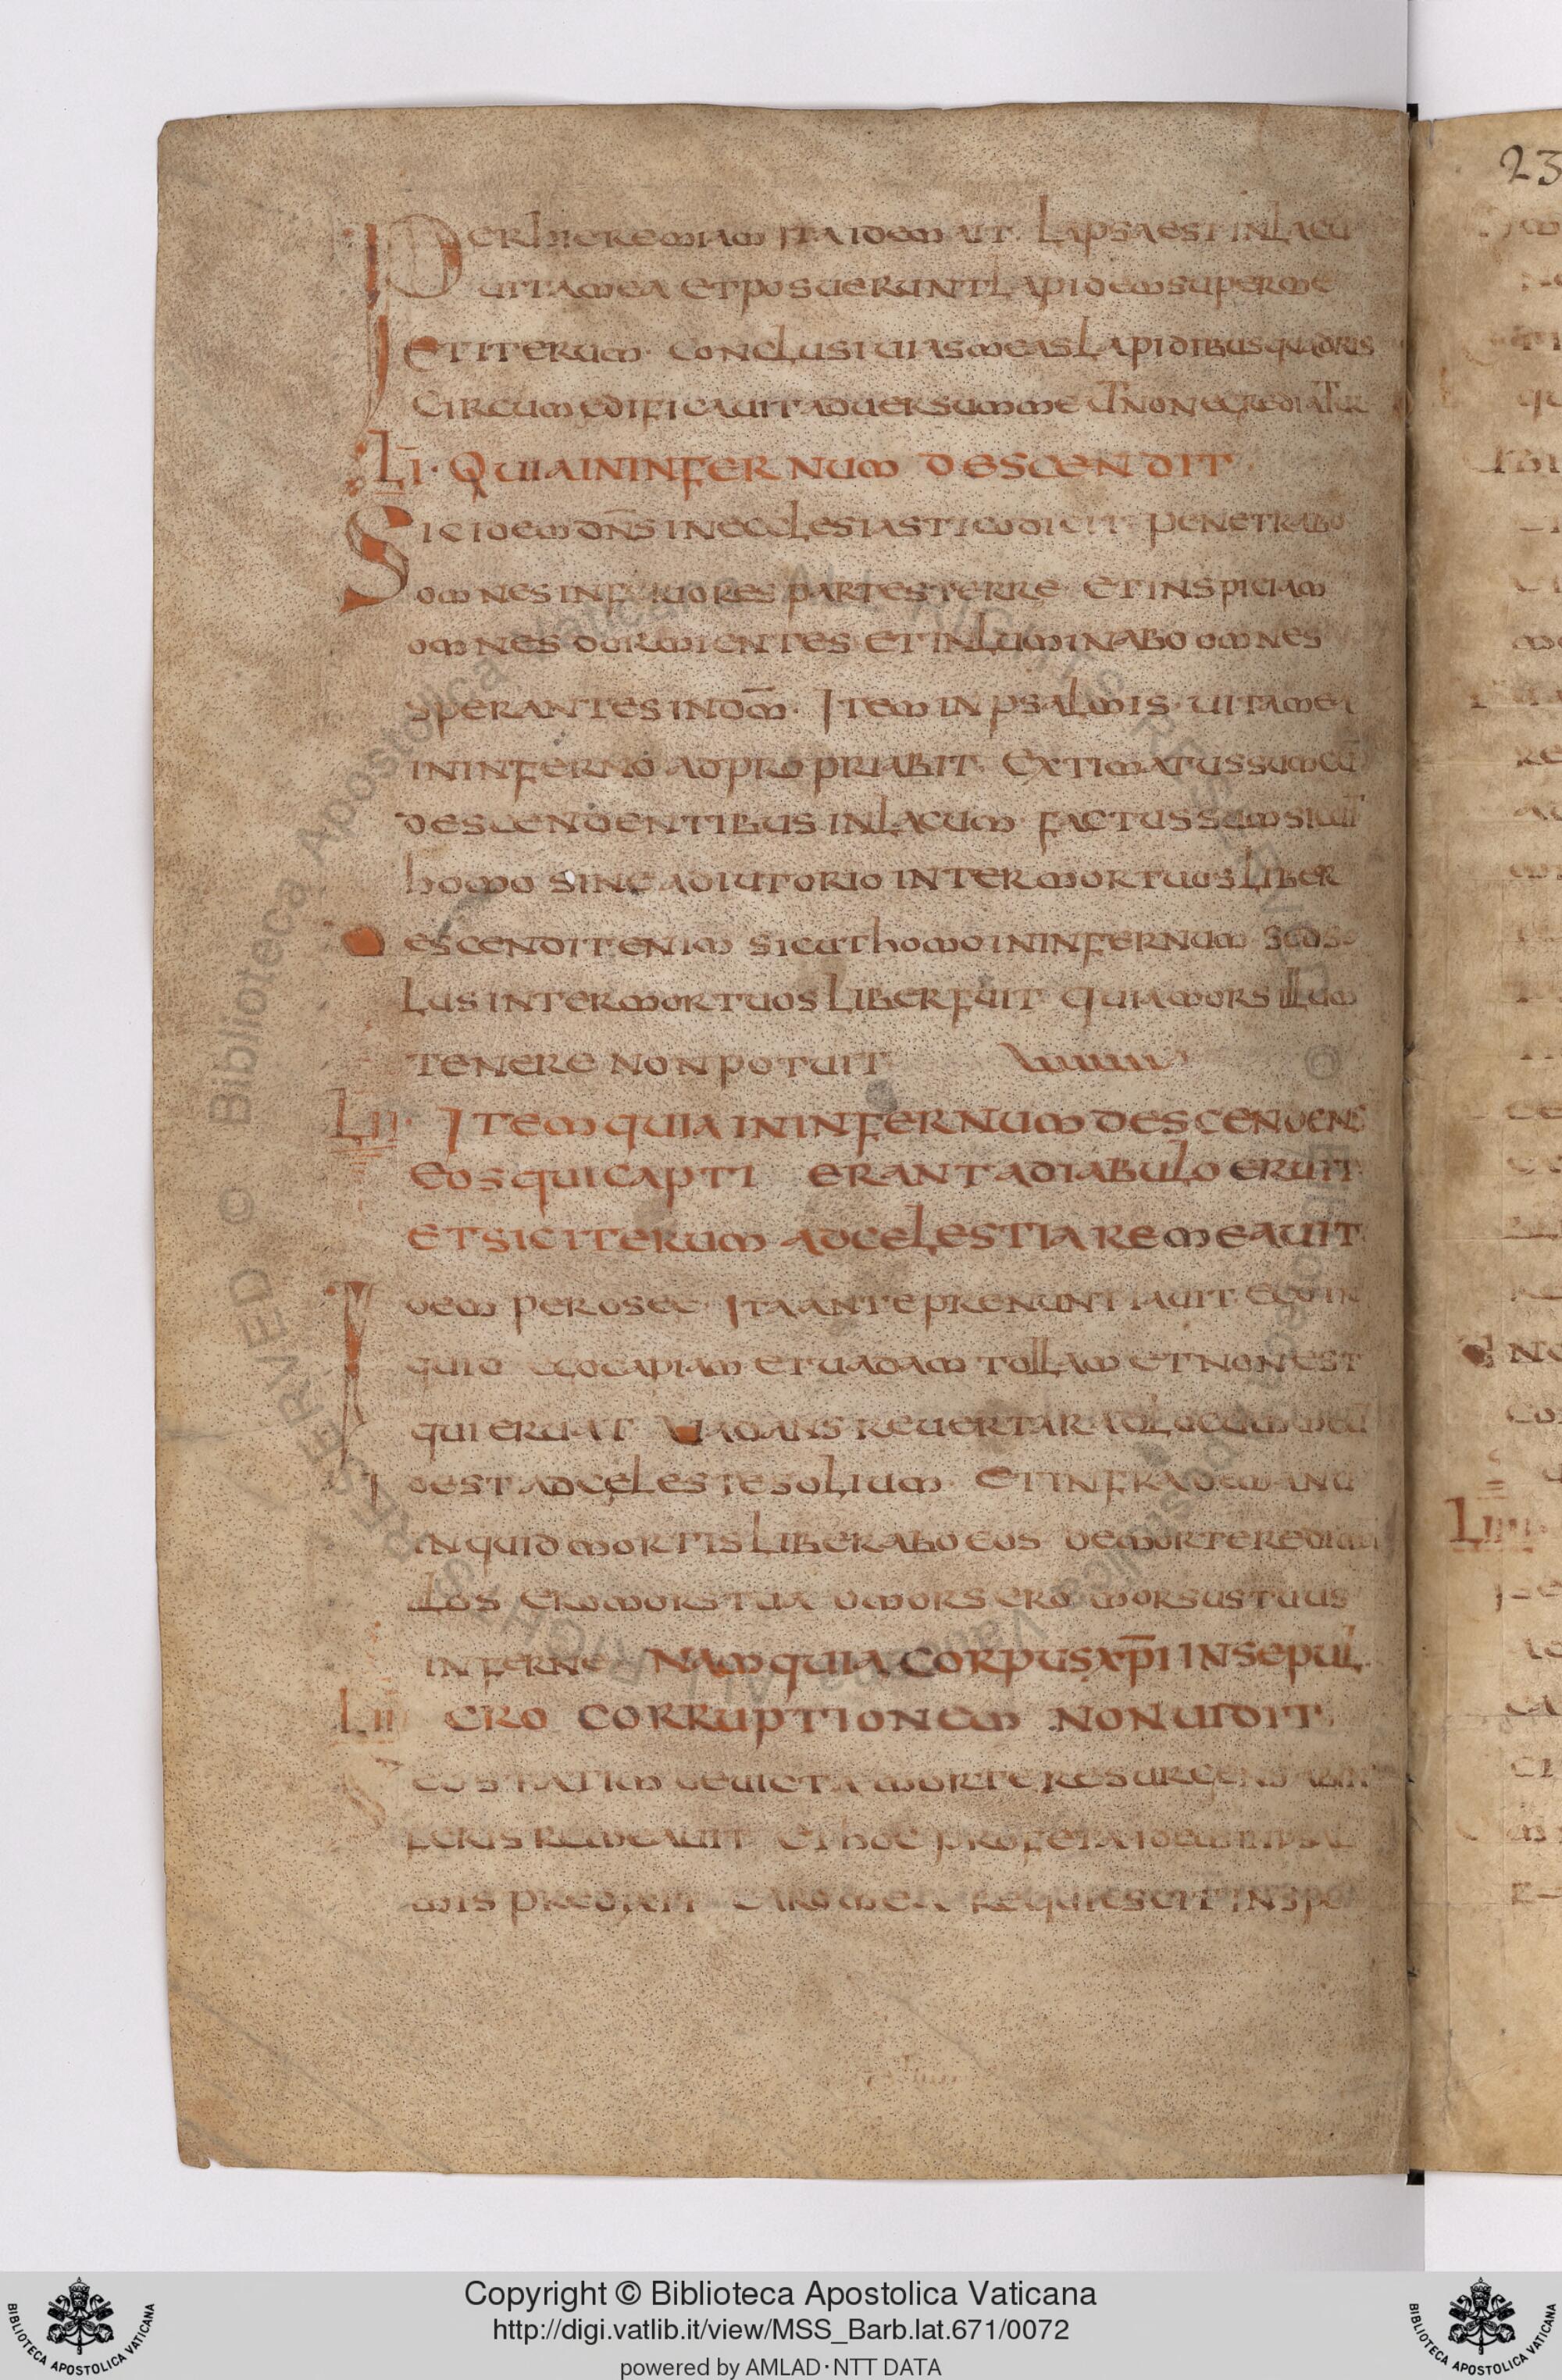 23
Per hieremiam ita idem ait. Lapsa est in lacu
uita mea et posuerunt lapidem super me
Et iterum. conclusit uias meas lapidibus quadris
circumedificauit aduersum me ut non egrediatur
LI. Quia in infernum descendit
Sic idem dn̄s in ecclesiastico dicit. penetrabo
omnes inferiores partes terre et inspiciam
omnes dormientes et inluminabo omnes
sperantes in dom̄. Item in psalmis. uita mea
in inferno adpropriabit. Extimatus sum cū
descendentibus in lacum. factus sum sicut
homo sine adiutorio inter mortuos liber
escendit enim sicut homo in infernum. sed so
lus inter mortuos liber fuit quia mors illum
tenere non potuit
LII. Item quia in infernum descendens
eos qui capti erant a diabulo eruit.
et sic iterum ad celestia remeauit.
Idem per osee. Ita ante prenuntiauit. ego in
quid ego capiam et uadam tollam et non est
qui eruat uadans reuertar ad locum meū
id est ad celeste solium. Et infra de manu
inquid mortis liberabo eos de morte redimam
ero mors tua o mors ero morsus tuus
inferne. Nam quia corpus xp̄i in sepul
LIII cro corruptionem non uidit.
statim deuicta morte resurgens ab in
feris remeauit et hoc profeta idem in psal
mis predixit caro mea requiescit in spe
Copyright © Biblioteca Apostolica Vaticana
http://digi.vatlib.it/view/MSS_Barb.lat.671/0072
powered by AMLAD·NTT DATA
BIBLIOTECA APOSTOLICA VATICANA
BIBLIOTECA APOSTOLICA VATICANA